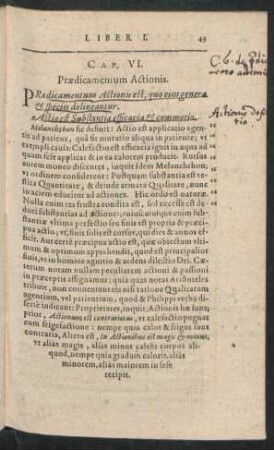 LIBER I. 49
CAP. VI.
Prædicamentum Actionis.
PRædicamentum Actionis est, quo eius genera
& species delineantur.
Actio est Substantiæ efficacia & commotio.
Melanchthon sic definit: Actio est applicatio agen-
tis ad patiens, quâ fit mutatio aliqua in patiente; vt
exempli causâ: Calefactio est efficacia ignis in aqua ad
quam sese applicat & in ea calorem producit. Rursus
autem moneo discentes, inquit idem Melanchthon;
ordinem considerent: Postquam substantia est ve-
stita Quantitate, & deinde armata Qualitate, tunc
incipit agere & sese exercere. Hic ordo est naturæ.
Nulla enim res frustra condita est, sed ad suas actiones
præcipuus
actio; vt, finis solis est cursus, qui dies & annos effi-
ciat. Aut certè præcipua actio est, quæ obiectum vlti-
mum & optimum apprehendit, quod est principalius
finis, vt in homine agnitio & ardens dilectio Dei. Cæ-
terum notam nullam peculiarem actioni & passioni
in præceptis assignamus; quia quas notas Aristoteles
tribuit, non conueniunt nisi ratione Qualitatum
agentium, vel patientium, quod & Philippi verba di-
sertè indicant: Proprietates, inquit, Actionis hæ sunt;
prior, Actionum est contrarietas, vt calefactio pugnat
cum frigefactione: nempe quia calor & frigus sunt
contraria, Altera est, In Actionibus est magis & minus;
vt aliàs magis, aliàs minùs calefit corpus ali-
quod, nempe quia gradum caloris aliàs
minorem, aliàs maiorem in sese
recipit.
C. 6. de
Actionis